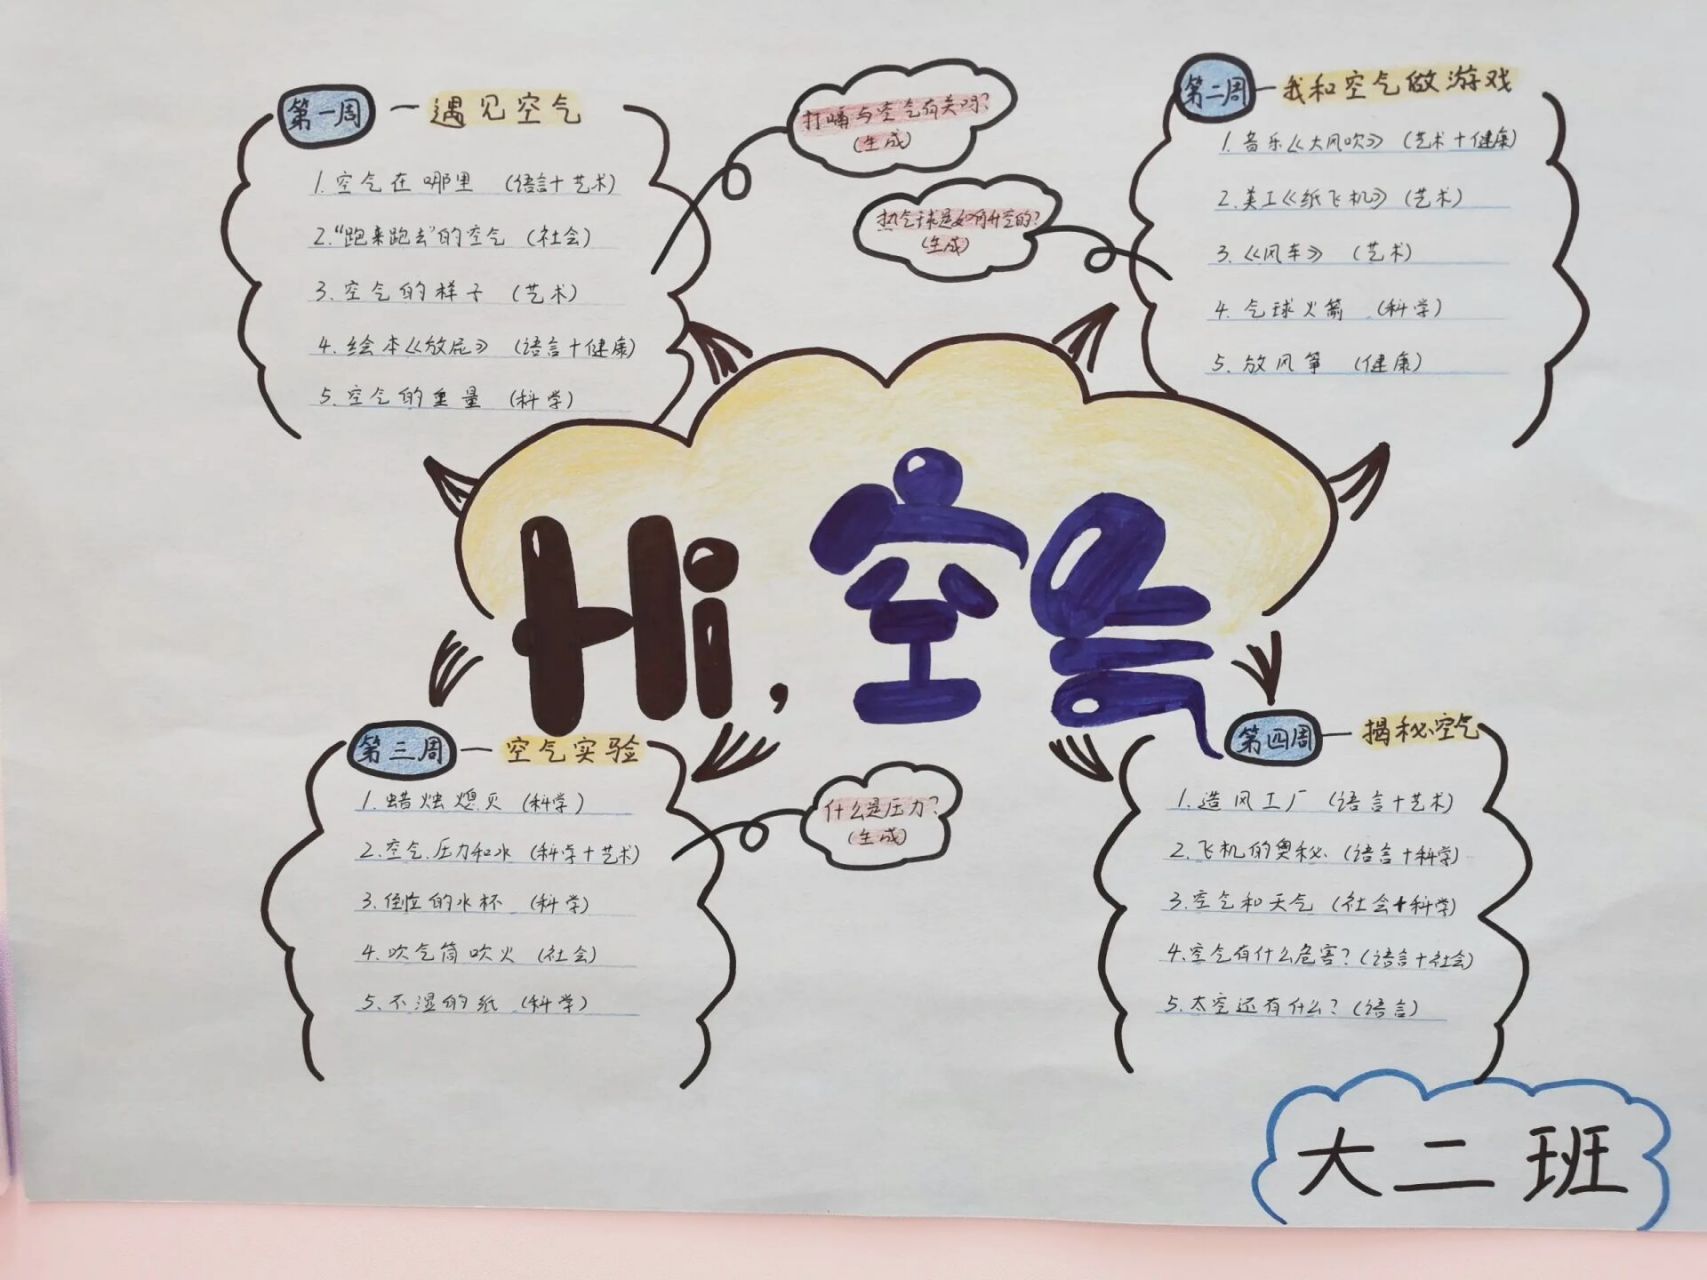 第一周 — 遇见空气
1. 空气在哪里 (语言+艺术)
2. “跑来跑去”的空气 (社会)
3. 空气的样子 (艺术)
4. 绘本《放屁》 (语言+健康)
5. 空气的重量 (科学)
打嗝与空气有关吗?
(生成)
热气球是如何升空的?
(生成)
第二周 — 我和空气做游戏
1. 音乐《大风吹》 (艺术+健康)
2. 美工《纸飞机》 (艺术)
3. 《风车》 (艺术)
4. 气球火箭 (科学)
5. 放风筝 (健康)
Hi, 空气
第三周 — 空气实验
1. 蜡烛熄灭 (科学)
2. 空气、压力和水 (科学+艺术)
3. 倒立的水杯 (科学)
4. 吹气筒吹火 (社会)
5. 不湿的纸 (科学)
什么是压力?
(生成)
第四周 — 揭秘空气
1. 造风工厂 (语言+艺术)
2. 飞机的奥秘 (语言+科学)
3. 空气和天气 (社会+科学)
4. 空气有什么危害? (语言+社会)
5. 太空还有什么? (语言)
大二班